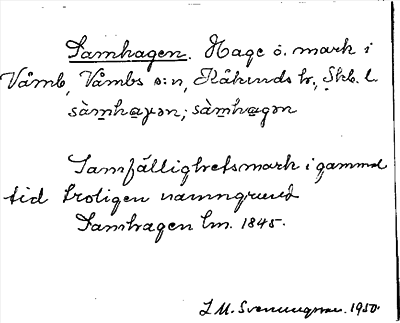 Samhagen. Hage ö. mark i
Våmb, Våmbs s:n, Kåkinds hr., Skb. l.
sàmhaɣən; sàmhagən
Samfällighetsmark i gammal
tid troligen namngrund
Samhagen lm. 1845.
I. M. Svenningson. 1950.